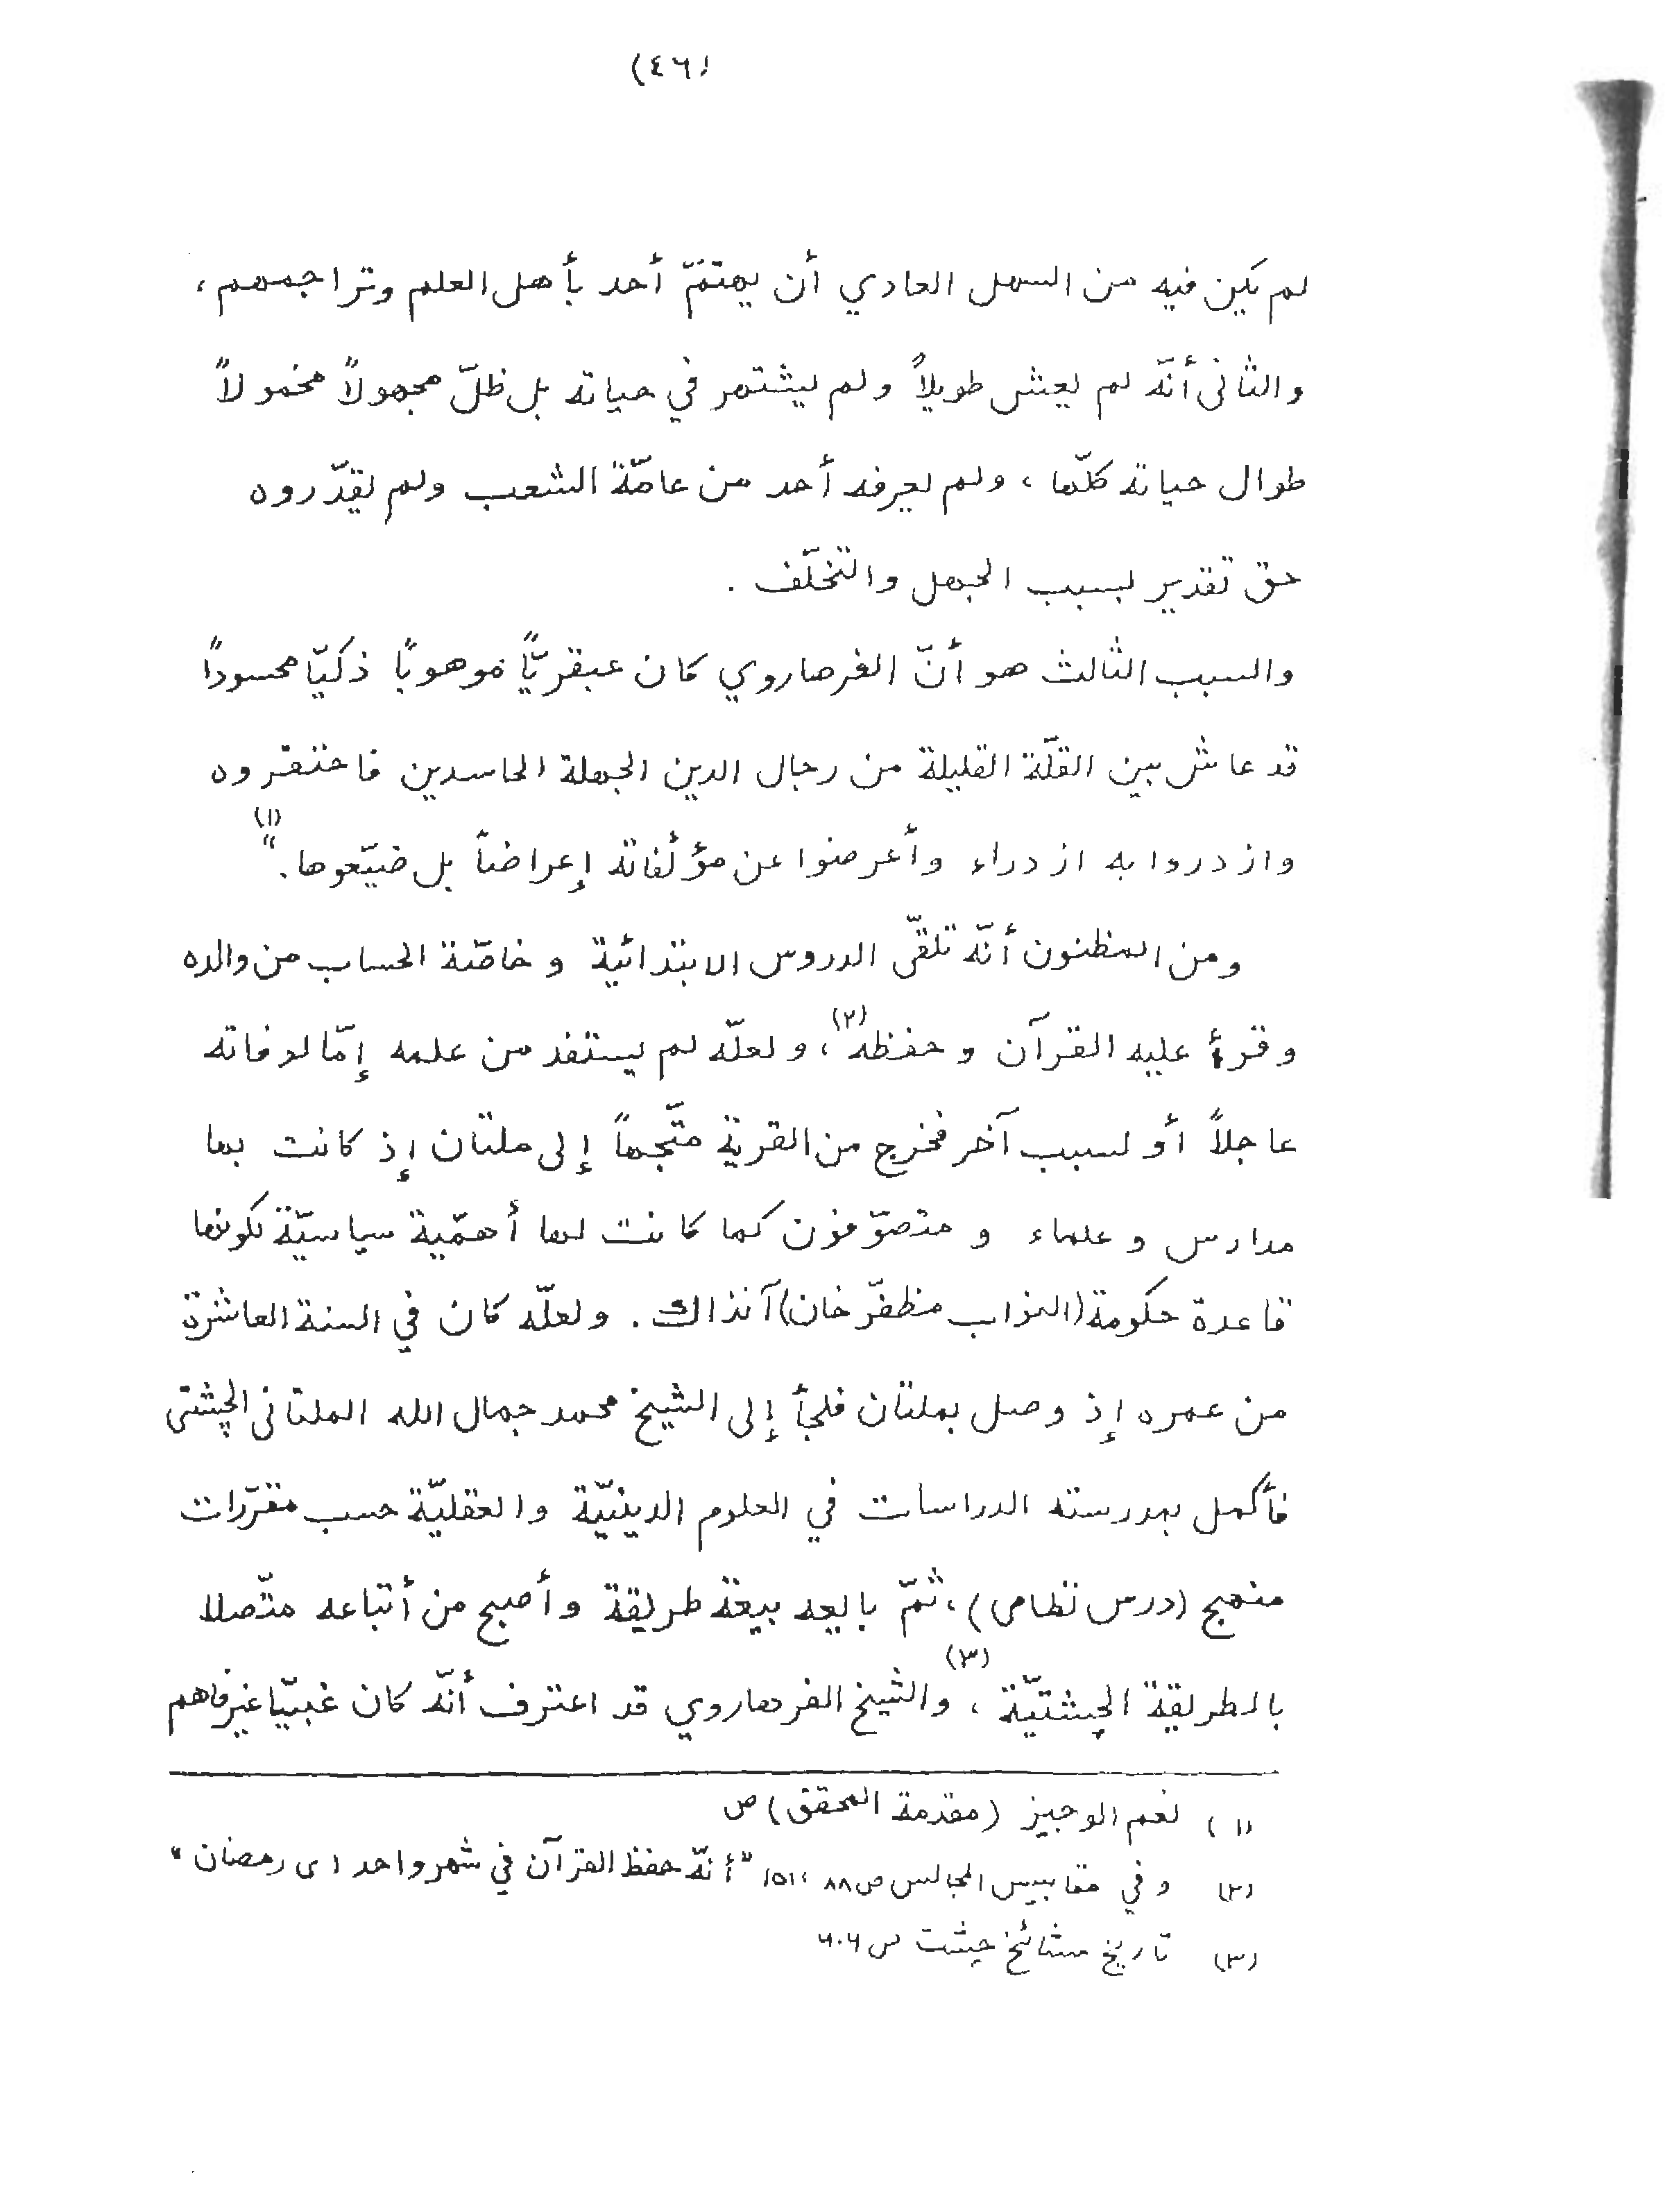 (٤٦)
لم يكن فيه من السهل العادي أن يهتمّ أحد بأهل العلم وتراجمهم ،
والثانى أنّه لم يعش طويلاً ولم يشتهر في حياته بل ظلّ مجهولاً مخمولاً
طوال حياته كلّها ، ولم يعرفه أحد من عامّة الشعب ولم يقدّروه
حق تقدير بسبب الجهل والتخلّف .
والسبب الثالث هو أنّ الفرهاروي كان عبقريّاً موهوباً ذكيّا محسوداً
قد عاش بين القلّة القليلة من رجال الدين الجهلة الحاسدين فاحتقروه
وازدروا به ازدراء وأعرضوا عن مؤلّفاته إعراضاً بل ضيّعوها . " (١)
ومن المظنون أنّه تلقّى الدروس الابتدائية وخاصّة الحساب من والده
وقرأ عليه القرآن وحفظه (٢) ، ولعلّه لم يستفد من علمه إمّا لوفاته
عاجلاً أو لسبب آخر فخرج من القرية متّجهاً إلى ملتان إذ كانت بها
مدارس وعلماء و متصوّفون كما كانت لها أهمّية سياسيّة لكونها
قاعدة حكومة (النواب مظفّر خان) آنذاك . ولعلّه كان في السنة العاشرة
من عمره إذ وصل بملتان فلجأ إلى الشيخ محمد جمال الله الملتانى الچشتى
فأكمل بمدرسته الدراسات في العلوم الدينيّة والعقليّة حسب مقرّرات
منهج (درس نظامى) ، ثمّ بايعه بيعة طريقة وأصبح من أتباعه متّصلا
بالطريقة الچشتيّة (٣) ، والشيخ الفرهاروي قد اعترف أنّه كان غبيّا غير فاهم
(١) نعم الوجيز (مقدمة المحقق) ص
(٢) وفي مقابيس المجالس ص ٨٨ ، ١٥١ " أنّه حفظ القرآن في شهر واحد اى رمضان "
(٣) تاريخ مشائخ چشت ص ٦٠٦